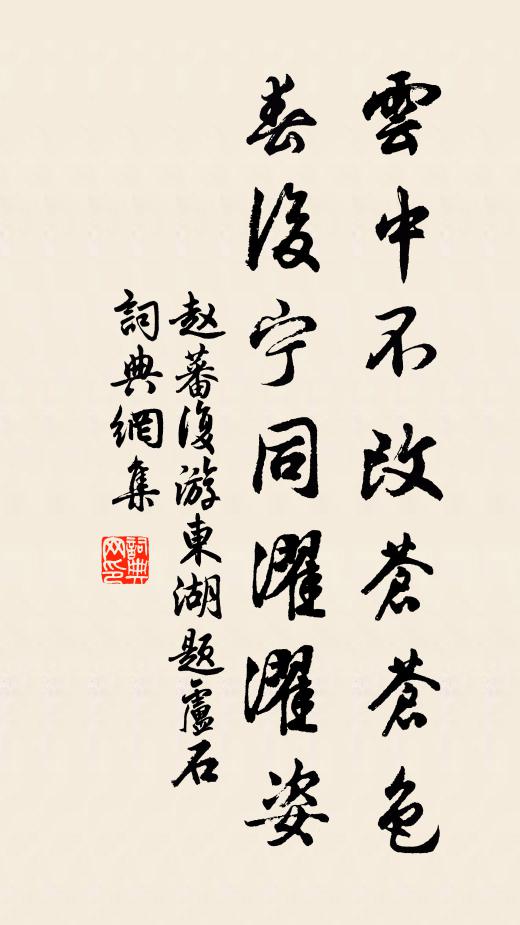 雲中不改蒼蒼色
春後宁同濯濯姿
赵蕃復游東湖题盧石
詞典網集
詞典网印